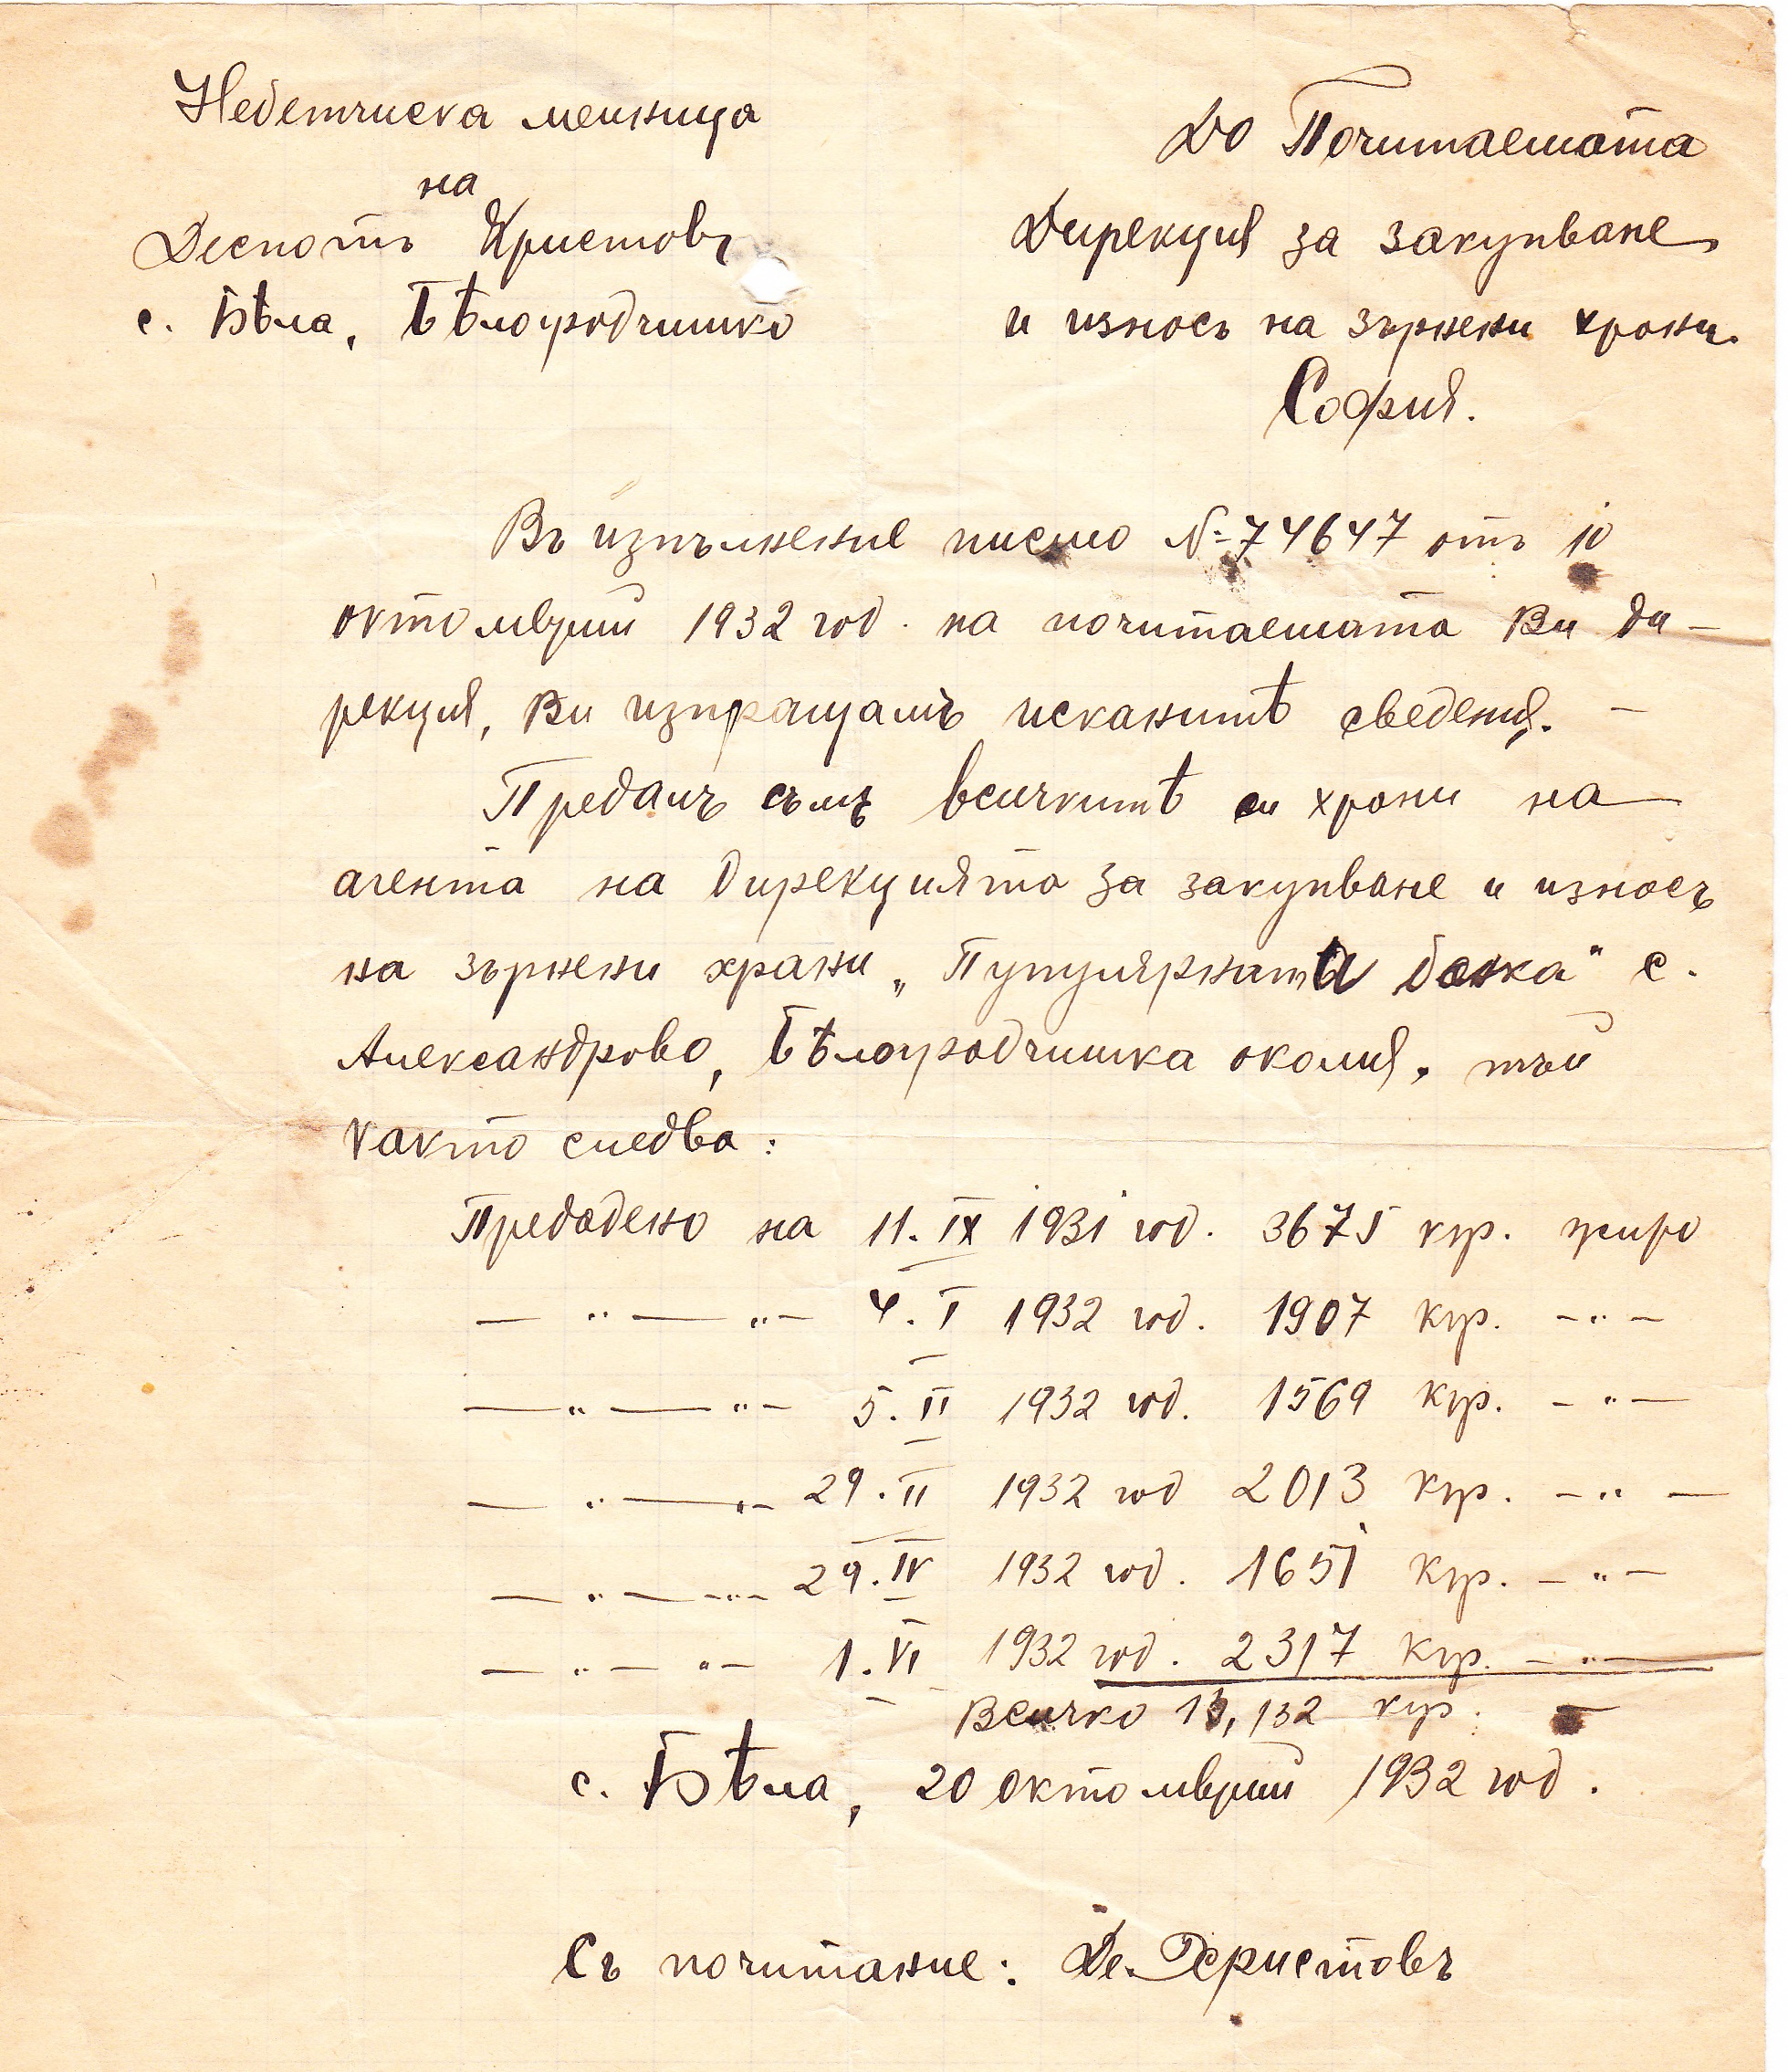 Небетчиска мелница
на
Деспотъ Христовъ
с. Бѣла, Бѣлоградчишко
До Почитаемата
Дирекция за закупване
и износъ на зърнени храни.
София.
Въ изпълнение писмо № 74647 отъ 10
октомврий 1932 год. на почитаемата Ви ди-
рекция, Ви изпращамъ исканитѣ сведения. —
Предалъ съмъ всичкитѣ си храни на
агента на Дирекцията за закупване и износъ
на зърнени храни „Пупулярната банка" с.
Александрово, Бѣлоградчишка околия, тъй
както следва:
Предадено на 11. IX 1931 год. 3675 кгр. жито
— „ — „ — 4. I 1932 год. 1907 кгр. — „ —
— „ — „ — 5. II 1932 год. 1569 кгр. — „ —
— „ — „ — 29. II 1932 год 2013 кгр. — „ —
— „ — „ — 29. IV 1932 год. 1651 кгр. — „ —
— „ — „ — 1. VI 1932 год. 2317 кгр. — „ —
Всичко 13,132 кгр. —
с. Бѣла, 20 октомврий 1932 год.
Съ почитание: Де. Христовъ